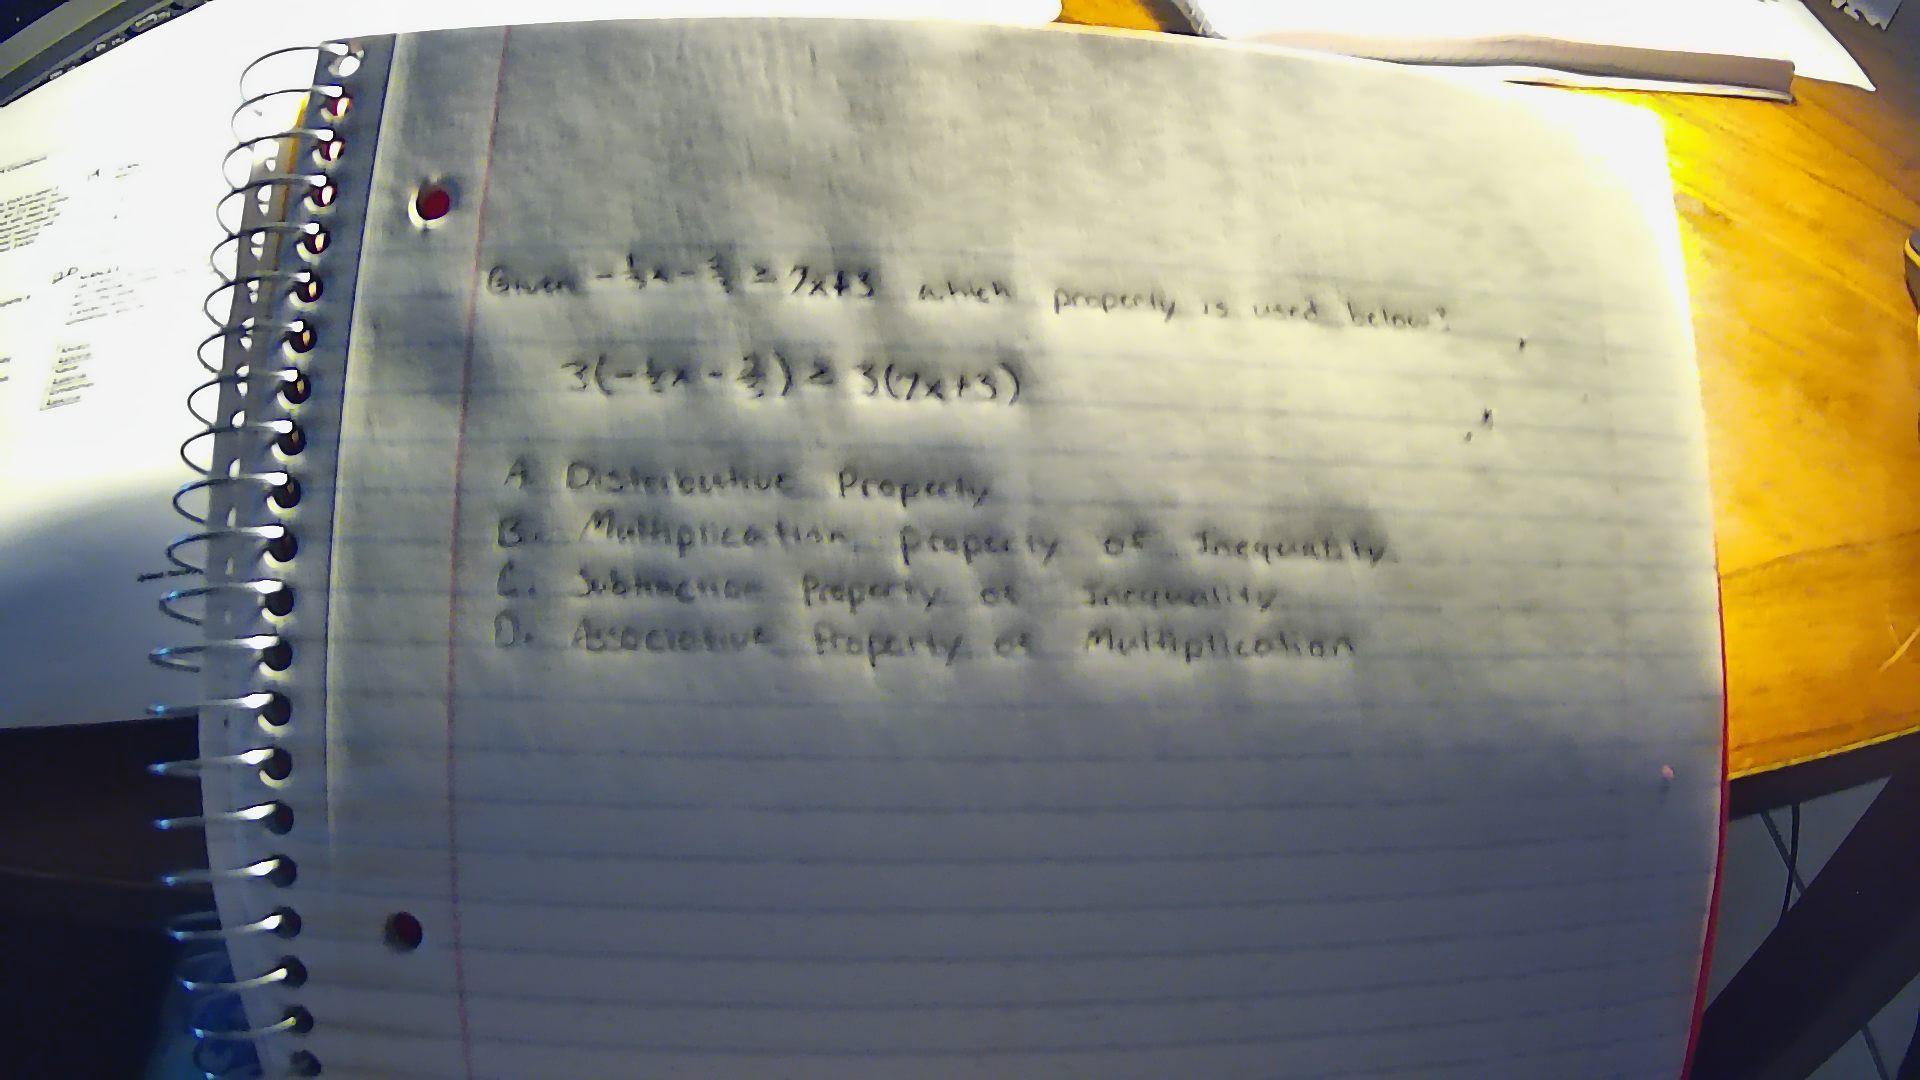 Given -1/3x - 2/3 ≥ 7x+3 which property is used below?
3(-1/3x - 2/3) ≥ 3(7x+3)
A. Distributive Property
B. Multiplication property of Inequality
C. Subtraction Property of Inequality
D. Associative Property of Multiplication